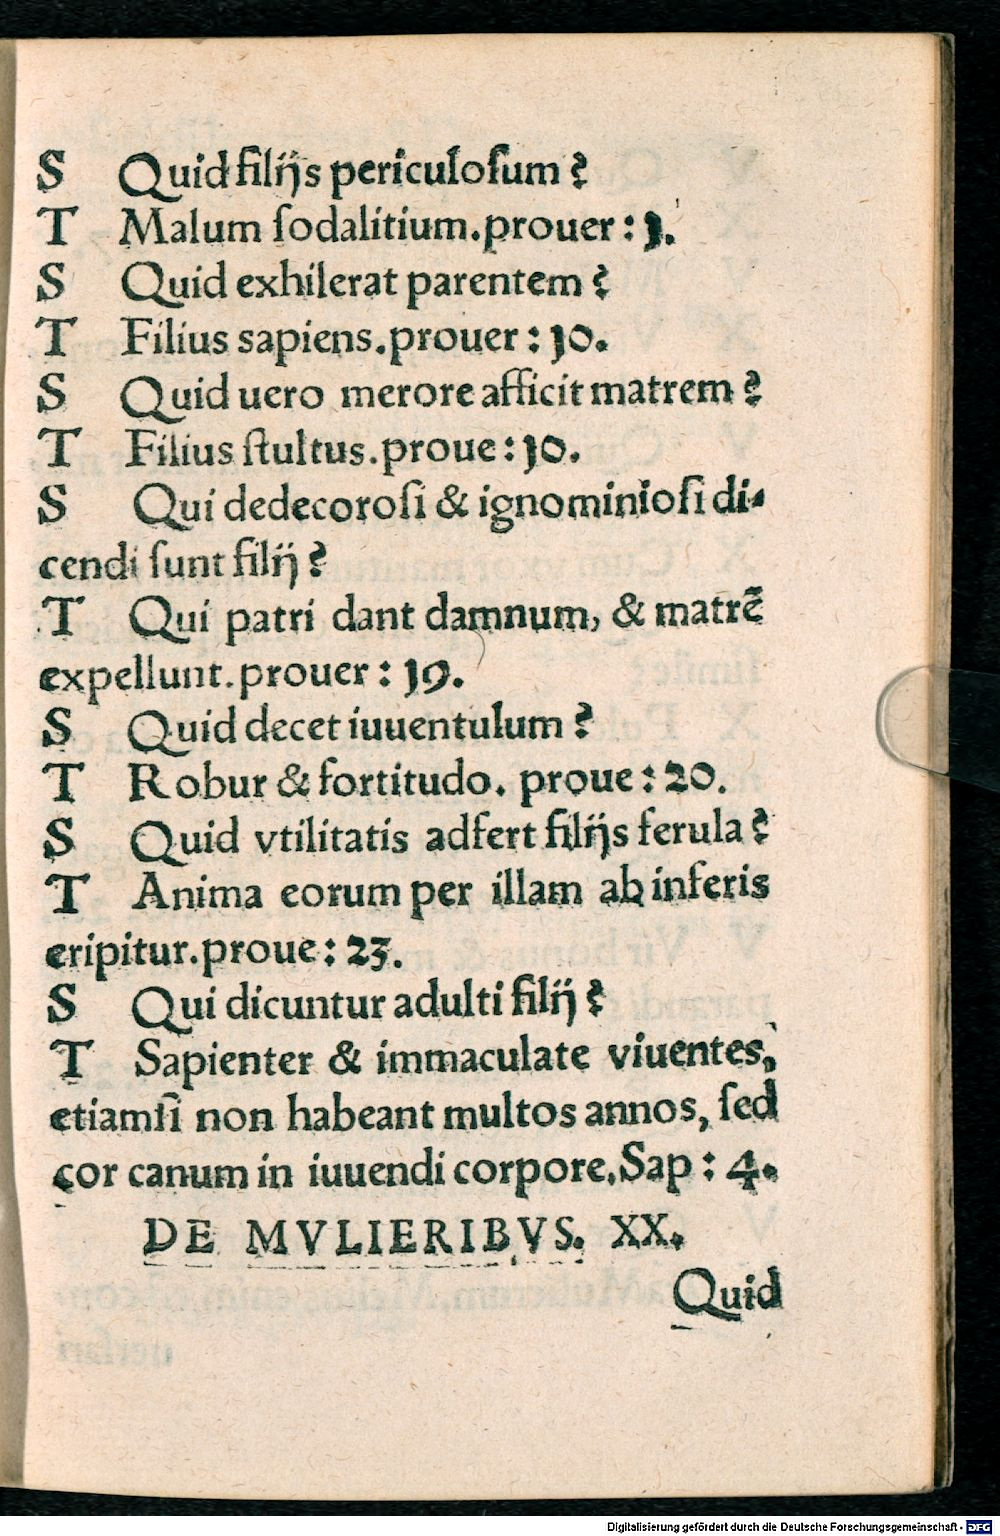 S Quid filijs periculoſum?
T Malum ſodalitium.prouer: 1.
S Quid exhilerat parentem?
T Filius sapiens.prouer: 10.
S Quid uero merore afficit matrem?
T Filius ſtultus.proue: 10.
S Qui dedecoroſi & ignominioſi di-
cendi ſunt filij?
T Qui patri dant damnum, & matrẽ
expellunt.prouer: 19.
S Quid decet iuuentulum?
T Robur & fortitudo. proue: 20.
S Quid vtilitatis adfert filijs ferula?
T Anima eorum per illam ab inferis
eripitur.proue: 23.
S Qui dicuntur adulti filij?
T Sapienter & immaculate viuentes,
etiamſi non habeant multos annos, ſed
cor canum in iuuendi corpore.Sap: 4.
DE MVLIERIBVS. XX.
Quid
Digitalisierung gefördert durch die Deutsche Forschungsgemeinschaft - DFG